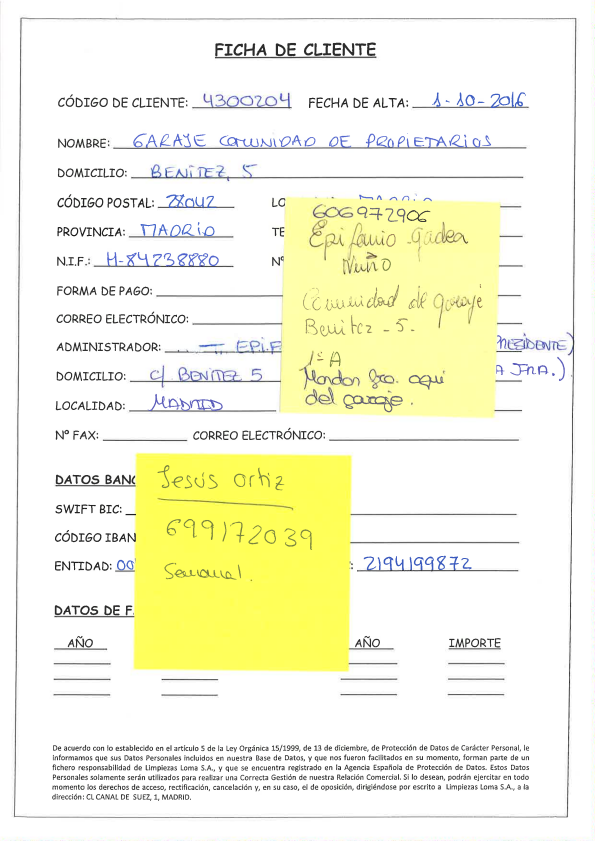 FICHA DE CLIENTE
CÓDIGO DE CLIENTE: 4300204 FECHA DE ALTA: 1-10-2016
NOMBRE: GARAJE COMUNIDAD DE PROPIETARIOS
DOMICILIO: BENÍTEZ, 5
CÓDIGO POSTAL: 28042 LO
PROVINCIA: MADRID TE
N.I.F.: H-84238880 Nº
FORMA DE PAGO:
CORREO ELECTRÓNICO:
ADMINISTRADOR: EPI.F RESIDENTE)
DOMICILIO: C/ BENITEZ 5 A JNA.)
LOCALIDAD: MADRID
Nº FAX: CORREO ELECTRÓNICO:
606972906
Epifanio Gadea
Nuño
Comunidad de garajé
Benitez - 5.
1º A
Mandar fra. aquí
del garaje.
DATOS BANC
SWIFT BIC:
CÓDIGO IBAN
ENTIDAD: 00 : 2194199872
DATOS DE F
Jesús Ortiz
699172039
Semanal.
AÑO AÑO IMPORTE
De acuerdo con lo establecido en el artículo 5 de la Ley Orgánica 15/1999, de 13 de diciembre, de Protección de Datos de Carácter Personal, le
informamos que sus Datos Personales incluidos en nuestra Base de Datos, y que nos fueron facilitados en su momento, forman parte de un
fichero responsabilidad de Limpiezas Loma S.A., y que se encuentra registrado en la Agencia Española de Protección de Datos. Estos Datos
Personales solamente serán utilizados para realizar una Correcta Gestión de nuestra Relación Comercial. Si lo desean, podrán ejercitar en todo
momento los derechos de acceso, rectificación, cancelación y, en su caso, el de oposición, dirigiéndose por escrito a Limpiezas Loma S.A., a la
dirección: CL CANAL DE SUEZ, 1, MADRID.